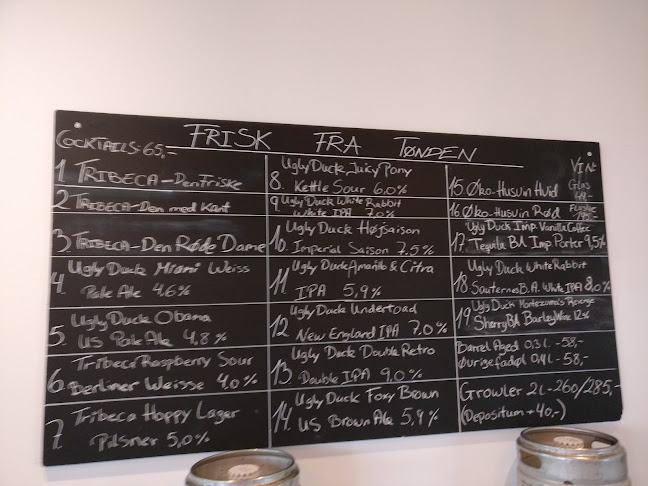 FRISK FRA TØNDEN
COCKTAILS: 65,-
1 TRIBECA - Den Friske
2 TRIBECA - Den med Kant
3 TRIBECA - Den Røde Dame
4. Ugly Duck Miami Weiss
Pale Ale 4,6%
5. Ugly Duck Obama
US Pale Ale 4,8%
6. Tribeca Raspberry Sour
Berliner Weisse 4,0%
7. Tribeca Hoppy Lager
Pilsner 5,0%
8. Ugly Duck Juicy Pony
Kettle Sour 6,0%
9 Ugly Duck White Rabbit
White IPA 7,0%
10. Ugly Duck Høfsaison
Imperial Saison 7,5%
11. Ugly Duck Amarillo & Citra
IPA 5,9%
12. Ugly Duck Undertoad
New England IPA 7,0%
13. Ugly Duck Double Retro
Double IPA 9,0%
14. Ugly Duck Foxy Brown
US Brown Ale 5,9%
VIN:
15 Øko-Husvin Hvid Glas
16 Øko-Husvin Rød Flaske
17. Ugly Duck Imp. Vanilla Coffee
Tequila BA Imp. Porter 9,5%
18. Ugly Duck White Rabbit
Sauternes B.A. White IPA 8,0%
19. Ugly Duck Montezuma's Revenge
Sherry BA Barley Wine 12%
Barrel Aged 0,3 L -58,-
Øvrige fadøl 0,4 L -58,-
Growler 2L-260/285,-
(Depositum +40,-)